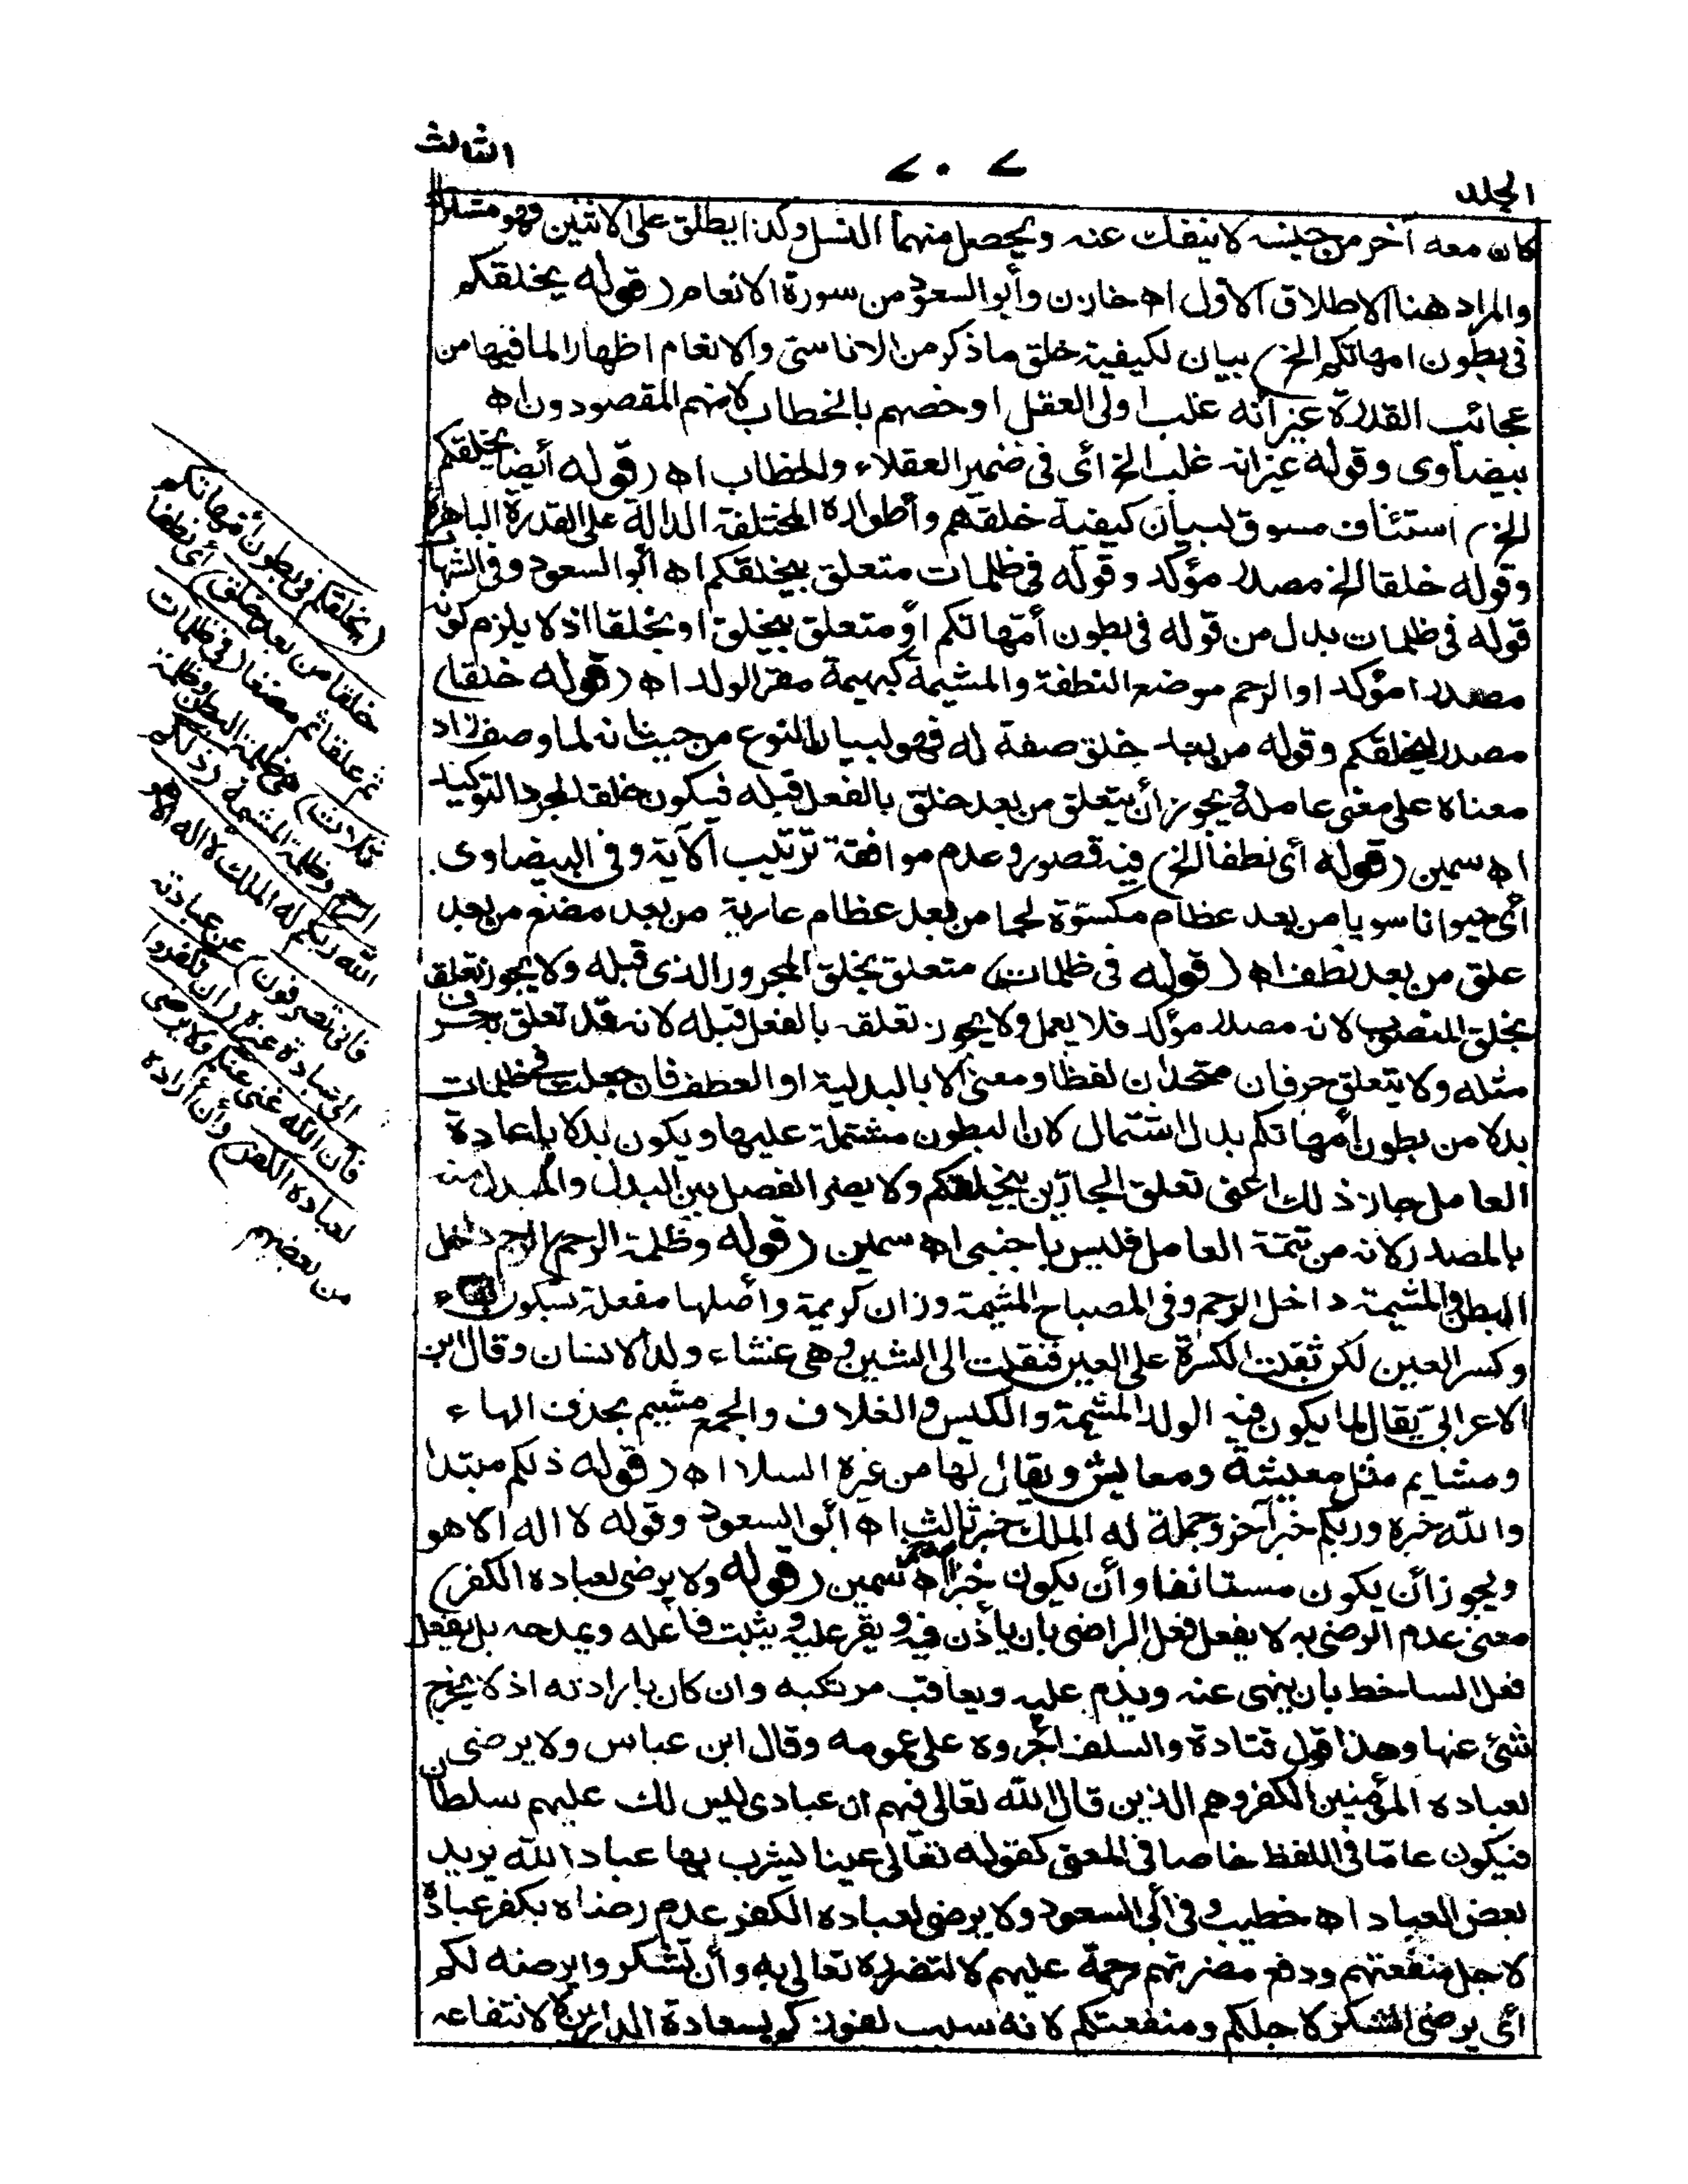 الجلد
٧٠٧
الثالث
كان معه آخر من جنسه لا ينفك عنه ويحصل منهما النسل وكذا يطلق على الاثنين فهو مشترك
والمراد هنا الاطلاق الاول اه خازن وأبو السعود من سورة الانعام (قوله يخلقكم
فى بطون امهاتكم الخ) بيان لكيفية خلق ما ذكر من الاناسى والانعام اظهارا لما فيها من
عجائب القدرة غير أنه غلب اولى العقل او خصهم بالخطاب لانهم المقصودون اه
بيضاوى وقوله غير انه غلب الخ أى فى ضمير العقلاء والخطاب اه (قوله أيضا يخلقكم
الخ) استئناف مسوق لبيان كيفية خلقهم وأطواره المختلفة الدالة على القدرة الباهرة
وقوله خلقا الخ مصدر مؤكد وقوله فى ظلمات متعلق بيخلقكم اه أبو السعود وفى الشهاب
قوله فى ظلمات بدل من قوله فى بطون أمهاتكم أو متعلق بيخلق او بخلقا اذ لا يلزم كونه
مصدرا مؤكدا والرحم موضع النطفة والمشيمة كبهيمة مقر الولد اه (قوله خلقا)
مصدر ليخلقكم وقوله من بعد خلق صفة له فهو لبيان النوع من حيث انه لما وصف زاد
معناه على معنى عامله ويجوز أن يتعلق من بعد خلق بالفعل قبله فيكون خلقا لمجرد التوكيد
اه سمين (قوله أى نطفا الخ) فيه قصور وعدم موافقة ترتيب الآية وفى البيضاوى
أى حيوانا سويا من بعد عظام مكسوة لحما من بعد عظام عارية من بعد مضغ من بعد
علق من بعد نطف اه (قوله فى ظلمات) متعلق بخلق المجرور الذى قبله ولا يجوز تعلقه
بخلق المنصوب لانه مصدر مؤكد فلا يعمل ولا يجوز تعلقه بالفعل قبله لانه قد تعلق به حرف
مثله ولا يتعلق حرفان متحدان لفظا ومعنى الا بالبدلية او العطف فان جعلت فى ظلمات
بدلا من بطون أمهاتكم بدل اشتمال لان البطون مشتملة عليها ويكون بدلا باعادة
العامل جاز ذلك اعنى تعلق الجارين بيخلقكم ولا يضر الفصل بين البدل والمبدل منه
بالمصدر لانه من تتمة العامل فليس باجنبى اه سمين (قوله وظلمة الرحم) الرحم داخل
البطن والمشيمة داخل الرحم وفى المصباح المشيمة وزان كريمة وأصلها مفعلة بسكون الفاء
وكسر العين لكن ثقلت الكسرة على العين فنقلت الى الشين وهى غشاء ولد الانسان وقال ابن
الاعرابى يقال لما يكون فيه الولد المشيمة والكيس والغلاف والجمع مشيم بحذف الهاء
ومشايم مثل معيشة ومعايش ويقال لها من غيره السلا اه (قوله ذلكم مبتدا
والله خبره وربكم خبر آخر وجملة له الملك خبر ثالث اه أبو السعود وقوله لا اله الا هو
ويجوز أن يكون مستانفا وأن يكون خبرا اه سمين (قوله ولا يرضى لعباده الكفر)
معنى عدم الرضى به لا يفعل فعل الراضى بان يأذن فيه ويقر عليه ويثبت فاعله ويمدحه بل يفعل
فعل الساخط بان ينهى عنه ويذم عليه ويعاقب مرتكبه وان كان بارادته اذ لا يخرج
شئ عنها وهذا قول قتادة والسلف أجروه على عمومه وقال ابن عباس ولا يرضى
لعباده المؤمنين الكفر وهم الذين قال الله تعالى فيهم ان عبادى ليس لك عليهم سلطان
فيكون عاما فى اللفظ خاصا فى المعنى كقوله تعالى عينا يشرب بها عباد الله يريد
بعض العباد اه خطيب وفى أبى السعود ولا يرضى لعباده الكفر عدم رضاه بكفر عباده
لاجل منفعتهم ودفع مضرتهم رحمة عليهم لا لتضرره تعالى به وأن تشكروا يرضه لكم
أى يرضى الشكر لاجلكم ومنفعتكم لانه سبب لفوزكم بسعادة الدارين لا لانتفاعه
(يخلقكم فى بطون امهاتكم
خلقا من بعد خلق) أى نطفا
ثم علقا ثم مضغا (فى ظلمات
ثلاث) هى ظلمة البطن وظلمة
الرحم وظلمة المشيمة (ذلكم
الله ربكم له الملك لا اله الا هو
فانى تصرفون) عن عبادته
الى عبادة غيره (ان تكفروا
فان الله غنى عنكم ولا يرضى
لعباده الكفر) وأن أراده
من بعضهم